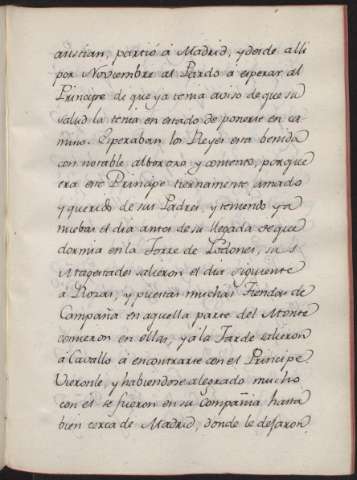 austrian, partió á Madrid, y desde alli
por Noviembre al Pardo a esperar al
Principe de que ya tenia aviso de que su
salud la tenia en estado de ponerse en ca-
mino. Esperaban los Reyes esta benida
con notable alborozo y contento, porque
era este Principe tiernamente amado
y querido de sus Padres, y teniendo ya
nuebas el dia antes de su llegada de que
dormia en la Torre de Lodones, sus
Magestades salieron el dia siguiente
á Rozas, y puestas muchas Tiendas de
Campaña en aquella parte del Monte
comieron en ellas, y á la Tarde salieron
á Cavallo á encontrarse con el Principe
Vieronle, y habiendose alegrado mucho
con el se fueron en su Compañia hasta
bien cerca de Madrid, donde le dejaron